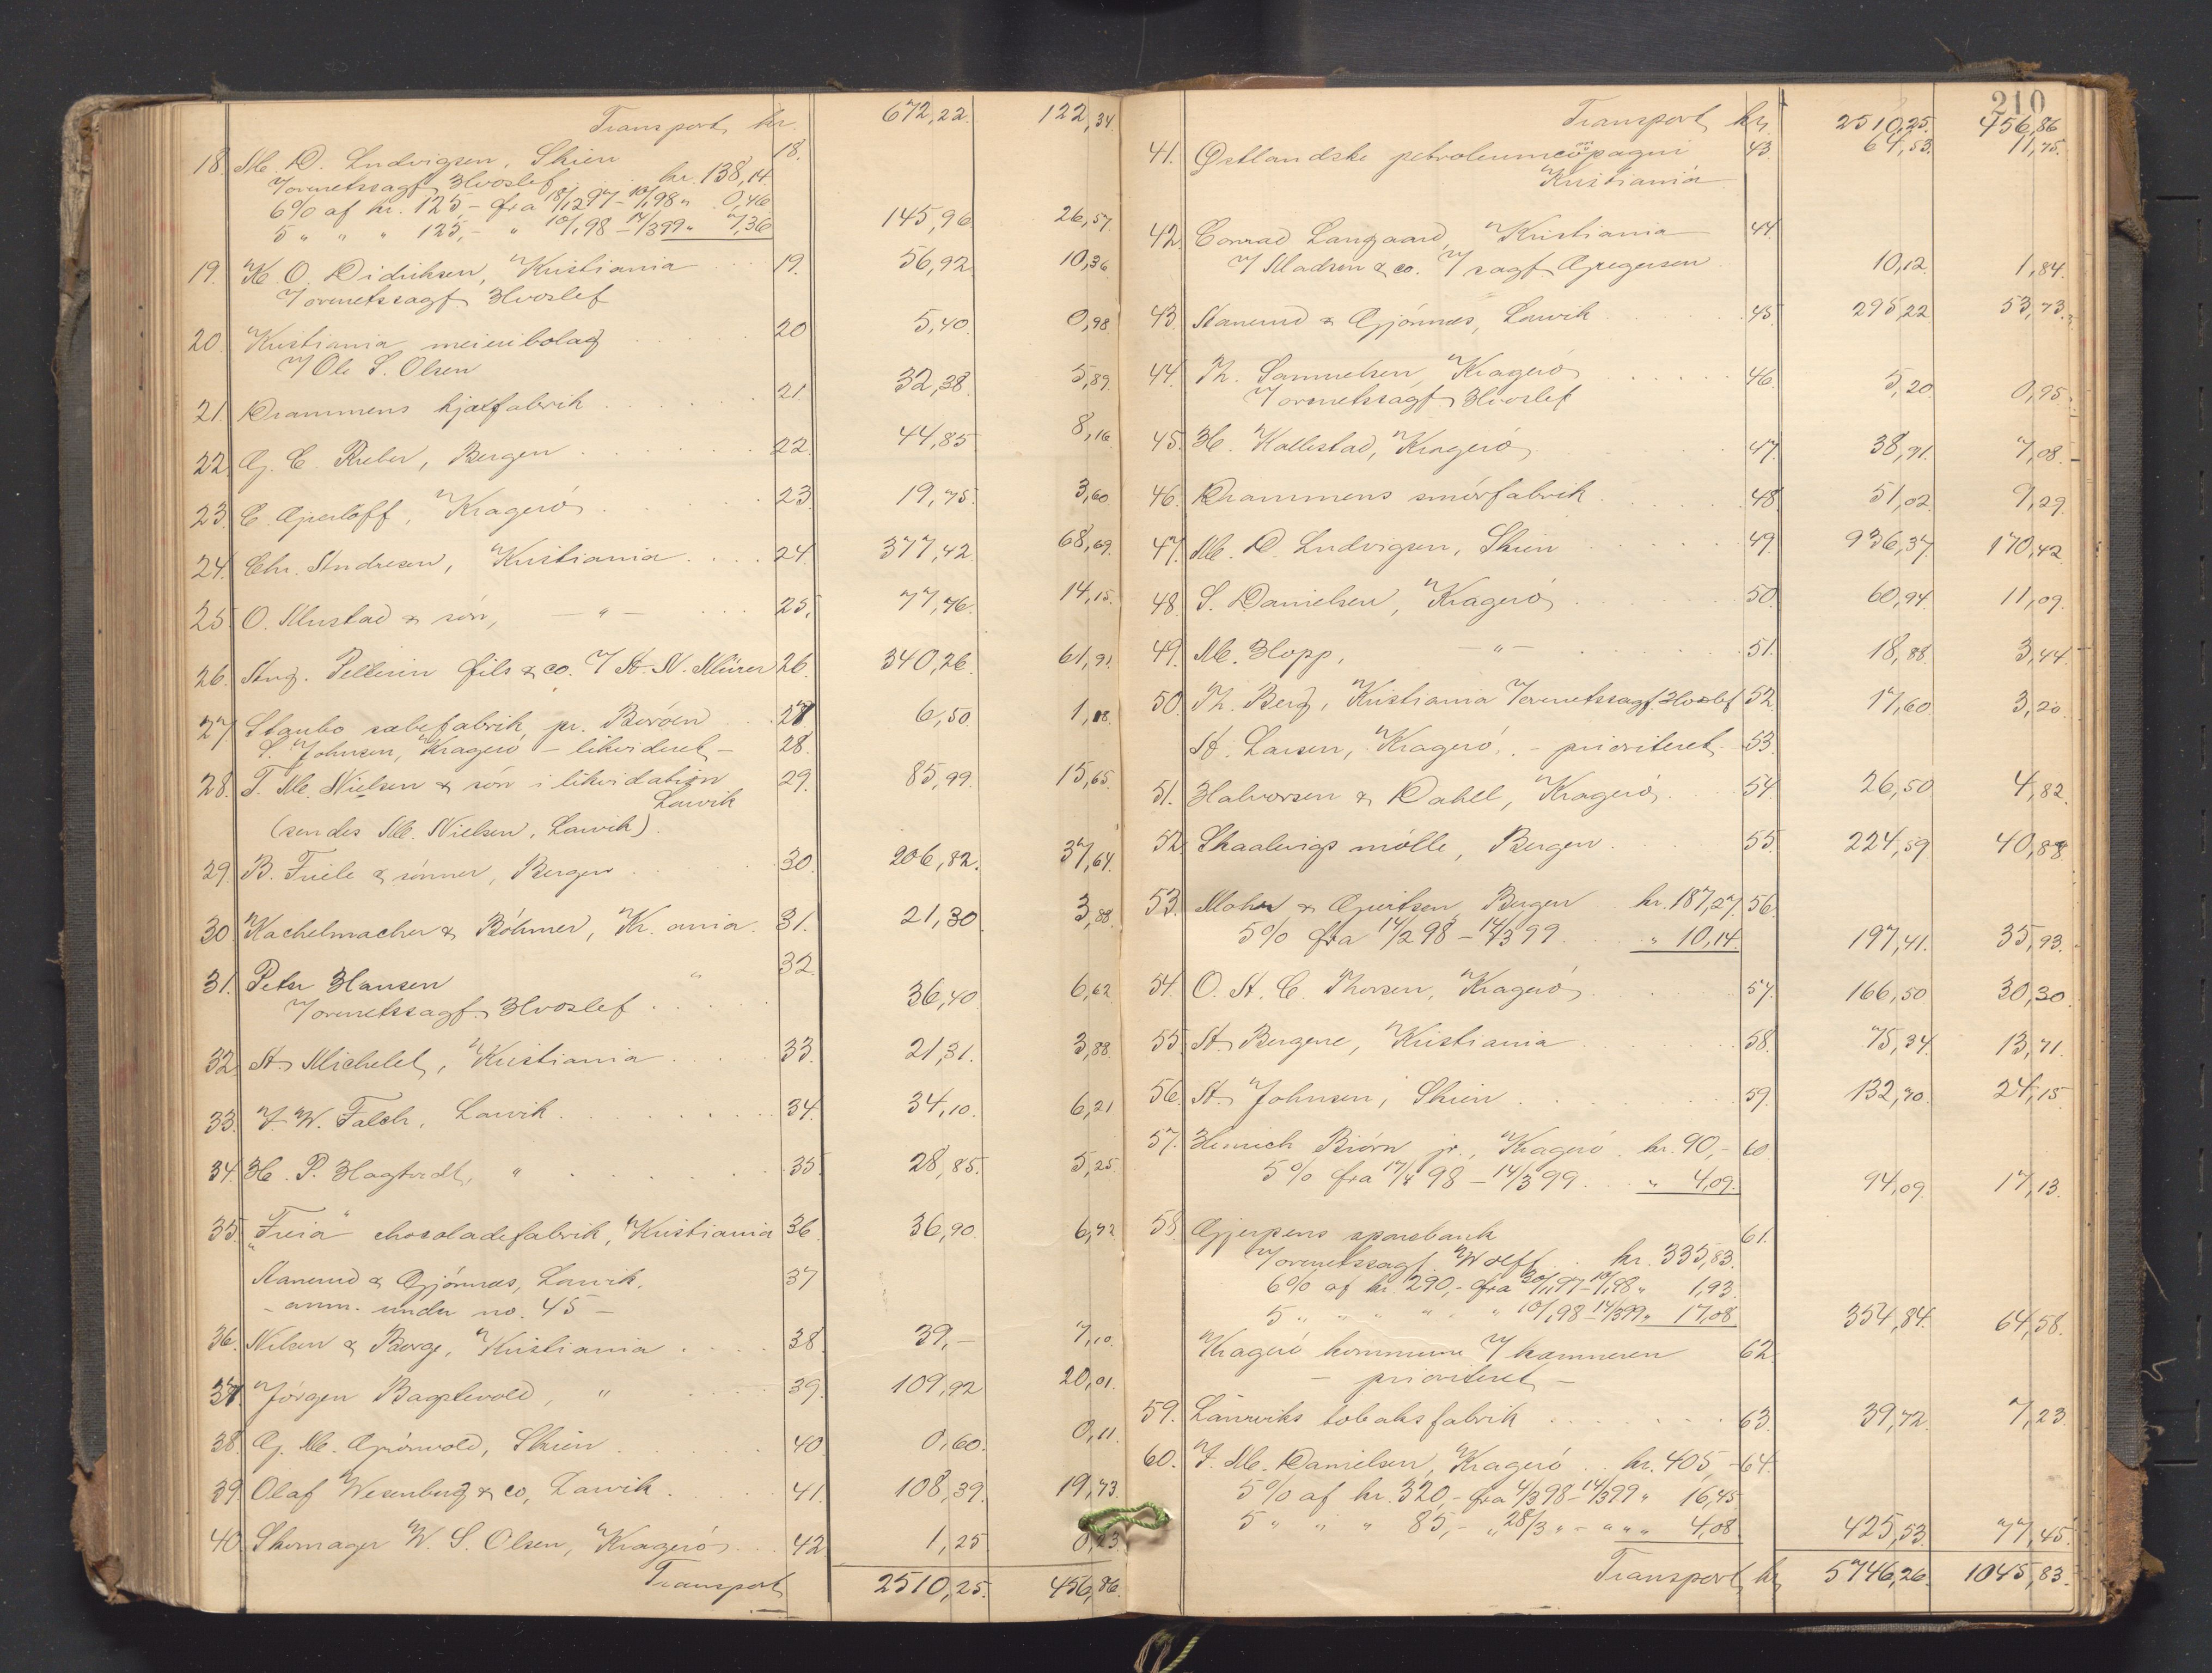 Transport kr. 672,22. 122,34
18. M. D. Ludvigsen, Skien 18.
v/overretssagf. Hvoslef . . kr. 138,14
6% af kr. 125,- fra 18/12 97 - 10/1 98 " 0,46
5 " " " 125,- " 10/1 98 - 14/3 99 " 7,36 145,96 26,57.
19. K. O. Didriksen, Kristiania . . 19. 56,92 10,36
v/overretssagf. Hvoslef
20. Kristiania meieribolag . . . 20 5,40. 0,98
v/Ole S. Olsen
21. Drammens kjæxfabrik . . . 21. 32,38. 5,89.
22. G. C. Rieber, Bergen . . . 22. 44,85 8,16
23. C. Gjerløff, Kragerø . . . 23. 19,75. 3,60
24. Chr. Andresen, Kristiania . . . 24. 377,42 68,69.
25. O. Mustad & søn, - " - . . . 25. 77,76. 14,15.
26. Aug. Pellerin fils & co. v/A. N. Mürer 26. 340,26 61,91.
27 Staubo sæbefabrik, pr. Berøen . . 27 6,50. 1,18.
S. Johnsen, Kragerø - likvideret - 28.
28. T. M. Nielsen & søn i likvidation 29. 85,99. 15,65.
Larvik
(sendes M. Nielsen, Larvik).
29. B. Friele & sønner, Bergen . . . 30. 206,82. 37,64.
30 Kachelmacher & Böhmer, Kr.ania . 31. 21,30 3,88.
31. Peter Hansen " 32.
v/overretssagf. Hvoslef . . . 36,40 6,62
32. A. Michelet, Kristiania . . . 33. 21,31. 3,88
33. F. W. Falch, Larvik . . . 34. 34,10. 6,21
34. H. P. Hagtvedt, " . . . 35. 28,85. 5,25
35. "Freia" chocoladefabrik, Kristiania 36. 36,90 6,72
Aanerud & Gjønnæs, Larvik, 37
- anm. under no. 45 -
36. Nilsen & Berge, Kristiania . . . 38. 39,- 7,10.
37. Jørgen Bagstevold, " . . . 39. 109,92 20,01.
38. G. M. Grønvold, Skien . . . 40. 0,60. 0,11.
39 Olaf Wesenberg & co, Larvik . . . 41. 108,39. 19,73.
40. Skomager W. S. Olsen, Kragerø . . . 42 1,25 0,23.
Transport 2510,25. 456,86.
210
Transport kr. 2510,25. 456,86
41. Østlandske petroleumcōpagni 43. 64,53. 11,75.
Kristiania
42. Conrad Langaard, Kristiania 44
v/Madsen & co. v/sagf. Gregersen 10,12. 1,84.
43. Aanerud & Gjønnæs, Larvik . . . 45. 295,22 53,73.
44. Th. Samuelsen, Kragerø . . . 46. 5,20. 0,95.
v/overretssagf. Hvoslef
45. H. Kallestad, Kragerø . . . 47. 38,91. 7,08.
46. Drammens smørfabrik . . . 48. 51,02. 9,29.
47. M. D. Ludvigsen, Skien . . . 49. 936,37. 170,42.
48. S. Danielsen, Kragerø . . . 50. 60,94. 11,09.
49. M. Hopp, - " - . . . 51. 18,88. 3,44.
50. Th. Berg, Kristiania v/overretssagf. Hvoslef 52. 17,60 3,20.
A. Larsen, Kragerø, - prioriteret - 53.
51. Halvorsen & Dahll, Kragerø . . . 54. 26,50 4,82.
52. Skaalevigs mølle, Bergen . . . 55. 224,59 40,88
53. Mohn & Giertsen, Bergen . kr. 187,27. 56.
5% fra 14/2 98 - 14/3 99 . . " 10,14. 197,41. 35,93.
54. O. A. C. Thorsen, Kragerø . . . 57. 166,50 30,30.
55. A. Bergene, Kristiania . . . 58. 75,34. 13,71.
56. A. Johnsen, Skien . . . 59. 132,70. 24,15
57. Henrich Biørn jr., Kragerø . kr. 90,- 60.
5% fra 17/4 98 - 14/3 99 . . " 4,09. 94,09. 17,13.
58. Gjerpens sparebank 61.
v/overretssagf. Wolff . . kr. 335,83.
6% af kr. 290,- fra 30/11 97 - 10/1 98 " 1,93.
5 " " " " " 10/1 98 - 14/3 99 " 17,08. 354,84. 64,58.
Kragerø kommune v/kæmneren 62.
- prioriteret -
59. Laurviks tobaksfabrik . . . 63. 39,72. 7,23.
60. F. M. Danielsen, Kragerø . . kr. 405,- 64.
5% af kr. 320,- fra 4/3 98 - 14/3 99 " 16,45.
5 " " " 85,- " 28/3 " - " " " 4,08. 425,53. 77,45.
Transport kr. 5746,26. 1045,83.